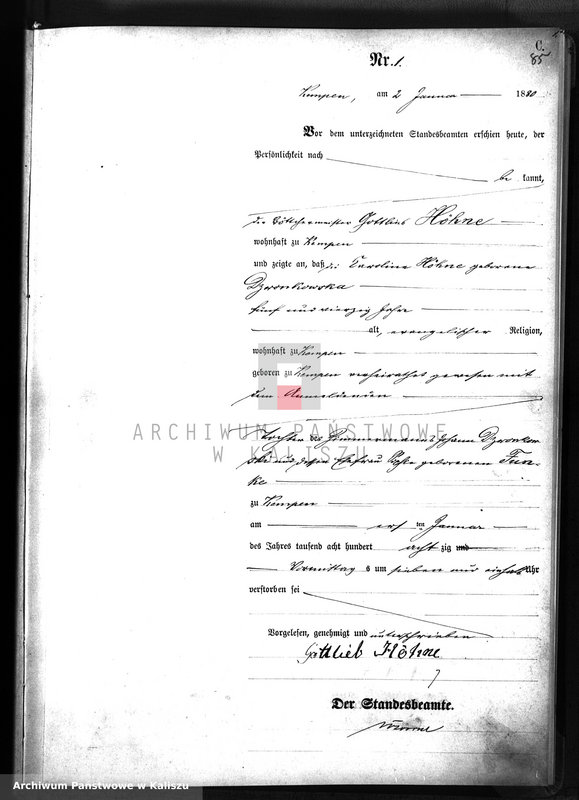 C.
85
Nr. 1.
Kempen, am 2 Januar 1880
Vor dem unterzeichneten Standesbeamten erschien heute, der
Persönlichkeit nach
be kannt,
Böttchermeister Gottlieb Höhne
wohnhaft zu Kempen
und zeigte an, daß die Caroline Höhne geborene
Dzwonkowska
fünf und vierzig Jahre
alt, evangelischer Religion,
wohnhaft zu Kempen
geboren zu Kempen verheirathet gewesen mit
dem Anmeldenden
Tochter des Johann Dzwonkow
ski und dessen Ehefrau geborenen Fun-
ke
zu Kempen
am ersten Januar
des Jahres tausend acht hundert acht zig und
Vormittags um sieben und Uhr
verstorben sei
Vorgelesen, genehmigt und unterschrieben
Gottlieb Höhne
Der Standesbeamte.
ARCHIWUM PAŃSTWOWE
W KALISZU
Archiwum Państwowe w Kaliszu